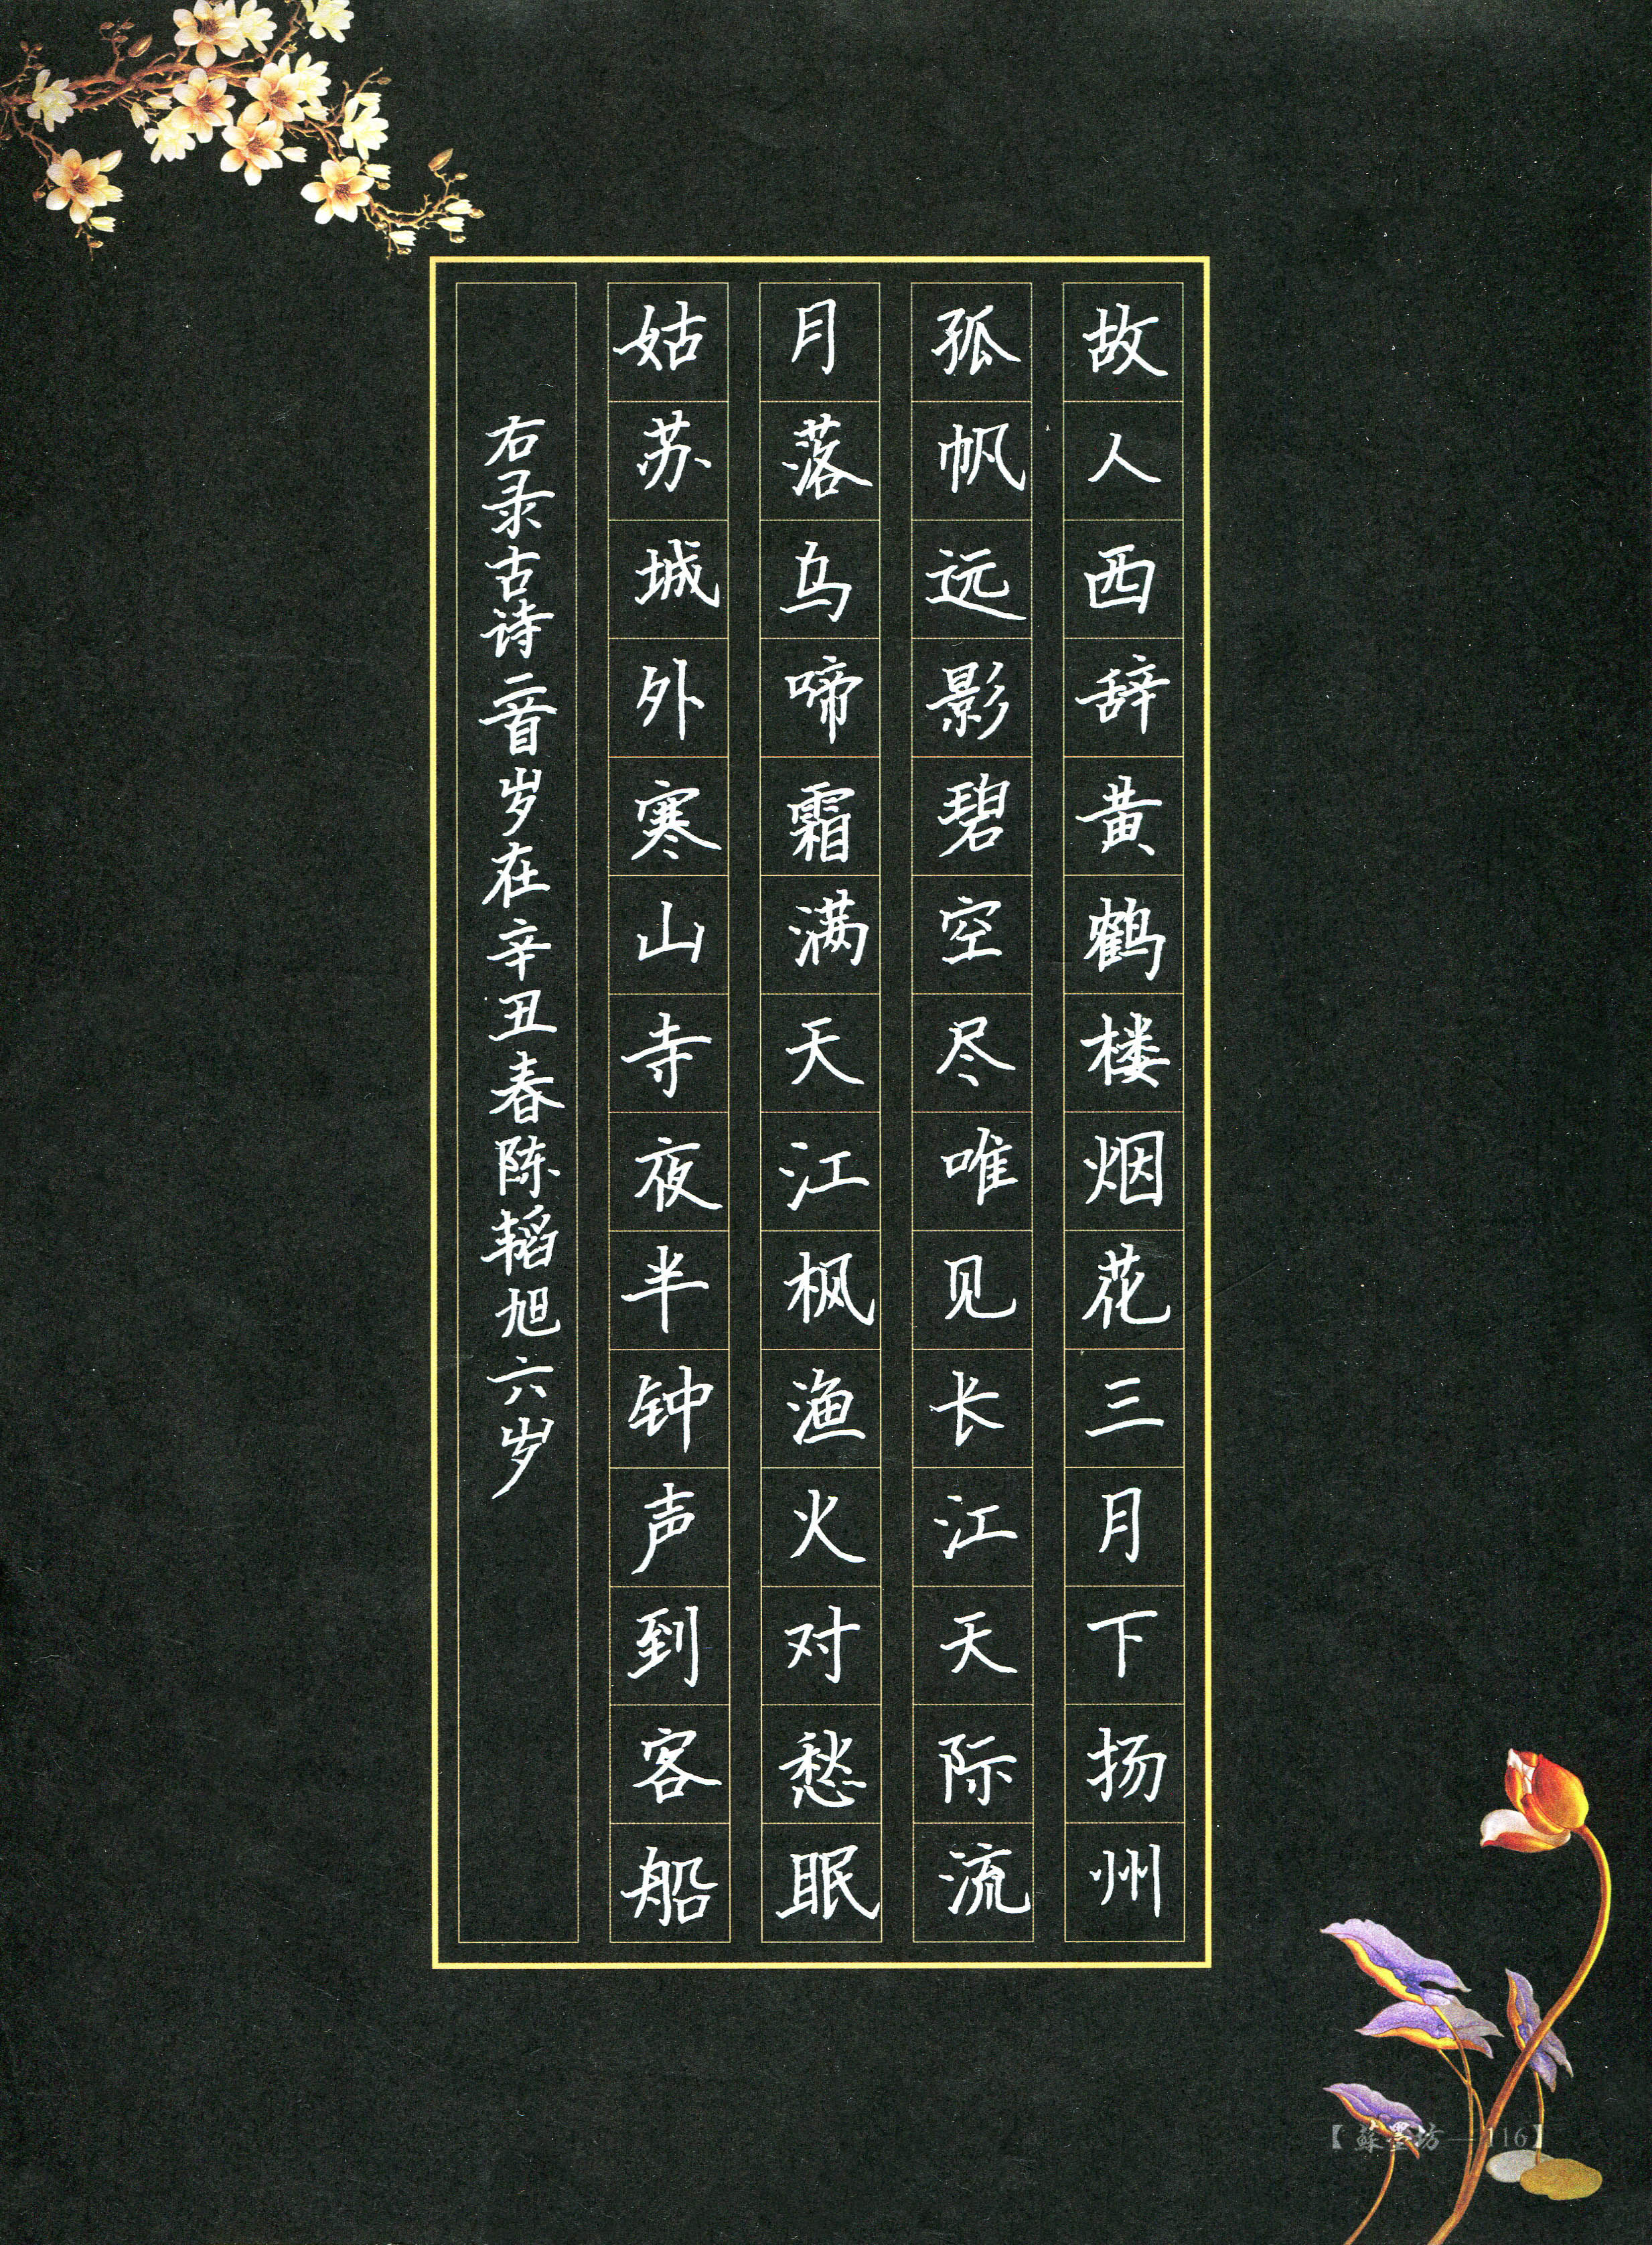 故人西辞黄鹤楼烟花三月下扬州
孤帆远影碧空尽唯见长江天际流
月落乌啼霜满天江枫渔火对愁眠
姑苏城外寒山寺夜半钟声到客船
右录古诗二首岁在辛丑春陈韬旭六岁
【蘇墨坊—116】